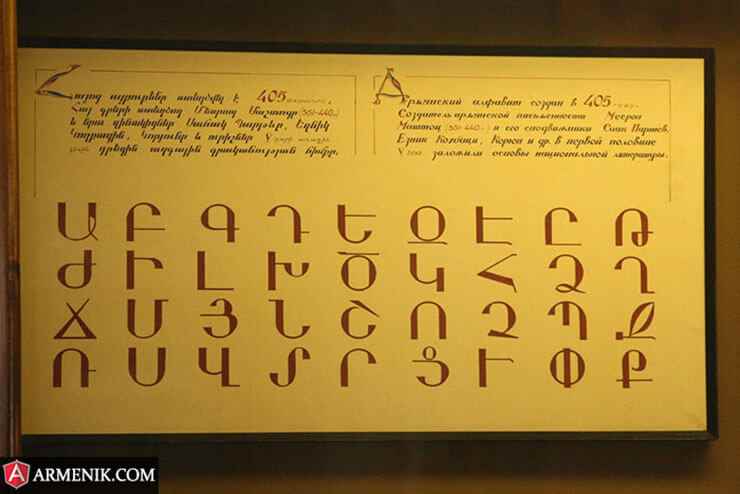 Հայոց այբուբենը ստեղծվել է 405
Հայ գրերի ստեղծող Մեսրոպ Մաշտոցը (361-440)
և նրա գործակիցներ Սահակ Պարթևը, Եզնիկ
Կողբացին, Կորյունը և ուրիշներ V դարի առաջին
կեսին դրեցին ազգային գրականության հիմքը.
Армянский алфавит создан в 405 году.
Создатель армянской письменности Месроп
Маштоц (361-440) и его сподвижники Саак Партев,
Езник Кохпаци, Корюн и др. в первой половине
V века заложили основы национальной литературы.
Ա Բ Գ Դ Ե Զ Է Ը Թ
Ժ Ի Լ Խ Ծ Կ Հ Ձ Ղ
Ճ Մ Յ Ն Շ Ո Չ Պ Ջ
Ռ Ս Վ Տ Ր Ց Ւ Փ Ք
ARMENIK.COM